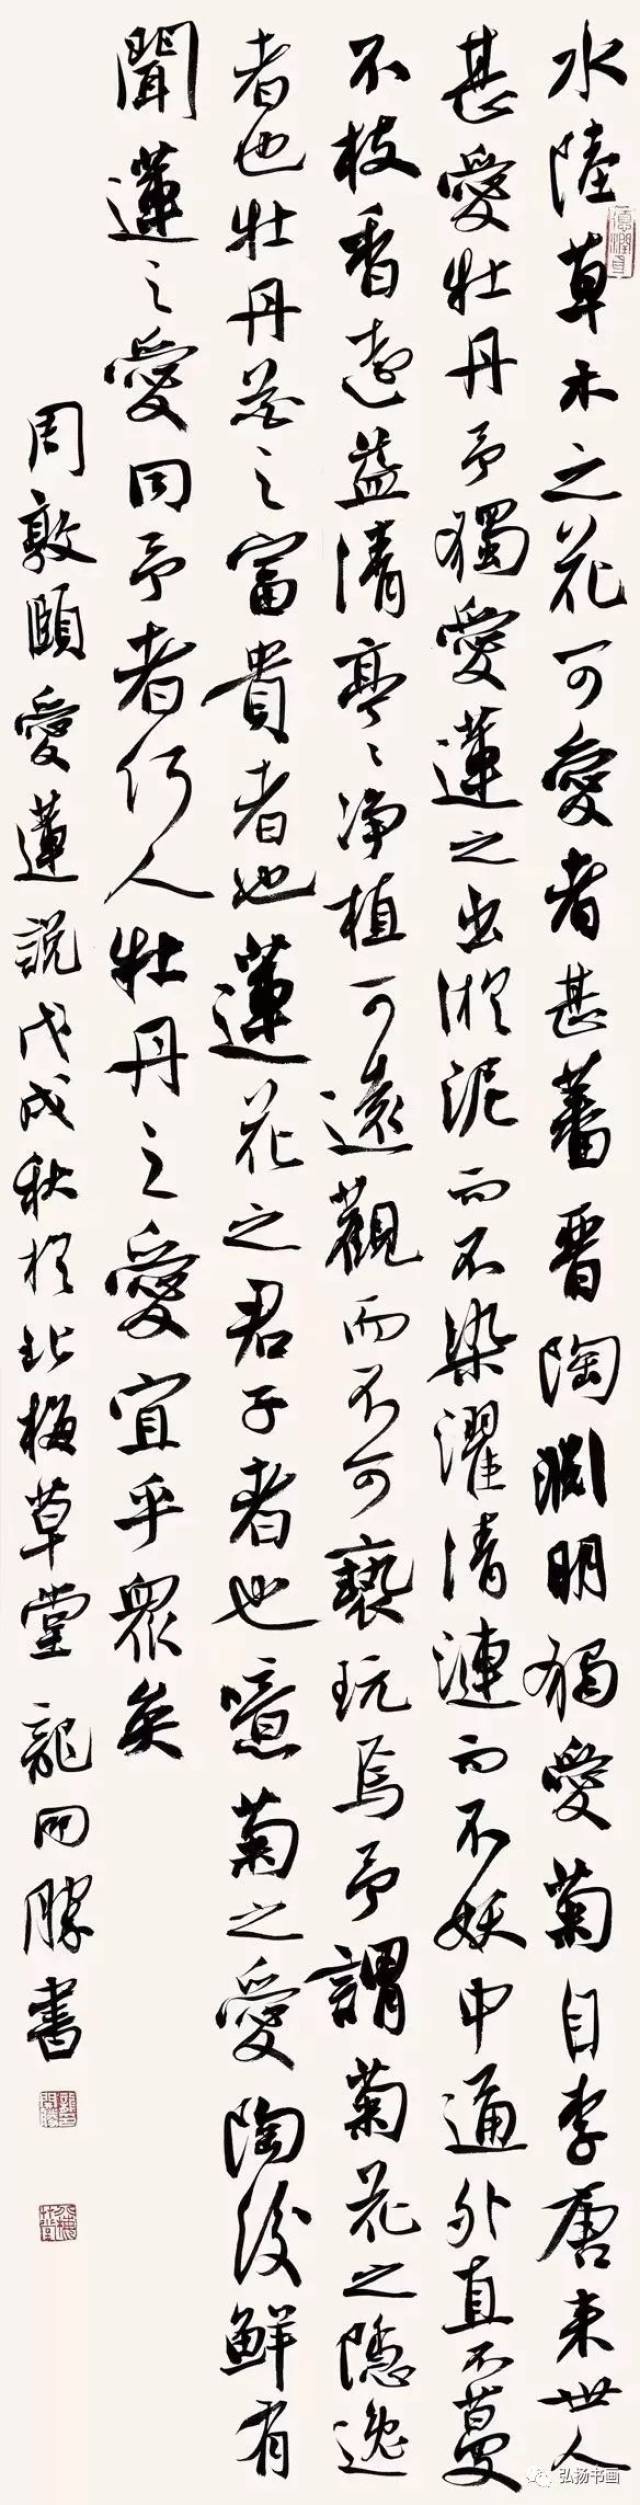 水陸草木之花可愛者甚蕃晋陶淵明獨愛菊自李唐来世人
甚愛牡丹予獨愛蓮之出淤泥而不染濯清漣而不妖中通外直不蔓
不枝香遠益清亭々净植可遠觀而不可褻玩焉予謂菊花之隱逸
者也牡丹花之富貴者也蓮花之君子者也噫菊之愛陶後鮮有
聞蓮之愛同予者何人牡丹之愛宜乎眾矣
周敦頤愛蓮説戊戌秋於北梅草堂龍開勝書
弘扬书画